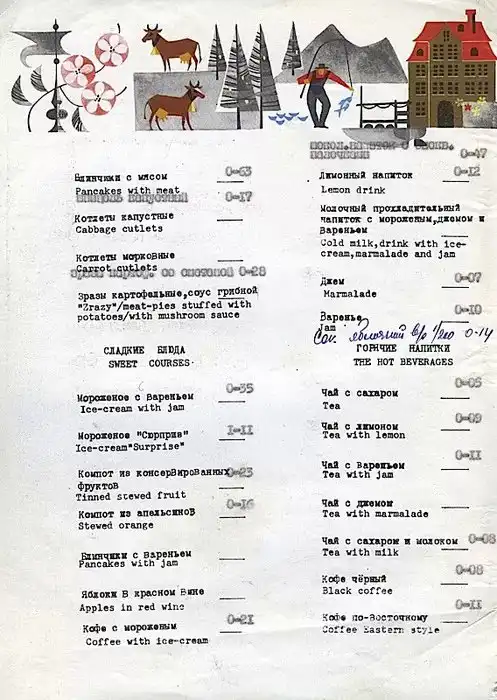 Блинчики с мясом 0-63
Pancakes with meat
0-17
Котлеты капустные
Cabbage cutlets
Котлеты морковные
Carrot cutlets
со сметаной 0-28
Зразы картофельные,соус грибной
"Zrazy"/meat-pies stuffed with
potatoes/with mushroom sauce
СЛАДКИЕ БЛЮДА
SWEET COURSES
0-35
Мороженое с Вареньем
Ice-cream with jam
1-11
Мороженое "Сюрприз"
Ice-cream"Surprise"
Компот из консервированных 0-23
фруктов
Tinned stewed fruit
0-16
Компот из апельсинов
Stewed orange
Блинчики с Вареньем
Pancakes with jam
Яблоки в красном вине
Apples in red wine
0-21
Кофе с мороженым
Coffee with ice-cream
0-47
0-12
Лимонный напиток
Lemon drink
Молочный прохладительный
напиток с мороженым,джемом и
Вареньем
Cold milk,drink with ice-
cream,marmalade and jam
0-07
Джем
Marmalade
0-10
Варенье
Jam
Сок яблочный 0-14
ГОРЯЧИЕ НАПИТКИ
THE HOT BEVERAGES
0-05
Чай с сахаром
Tea
0-09
Чай с лимоном
Tea with lemon
0-11
Чай с Вареньем
Tea with jam
Чай с джемом
Tea with marmalade
Чай с сахаром и молоком 0-08
Tea with milk
0-08
Кофе чёрный
Black coffee
0-11
Кофе по-Восточному
Coffee Eastern style